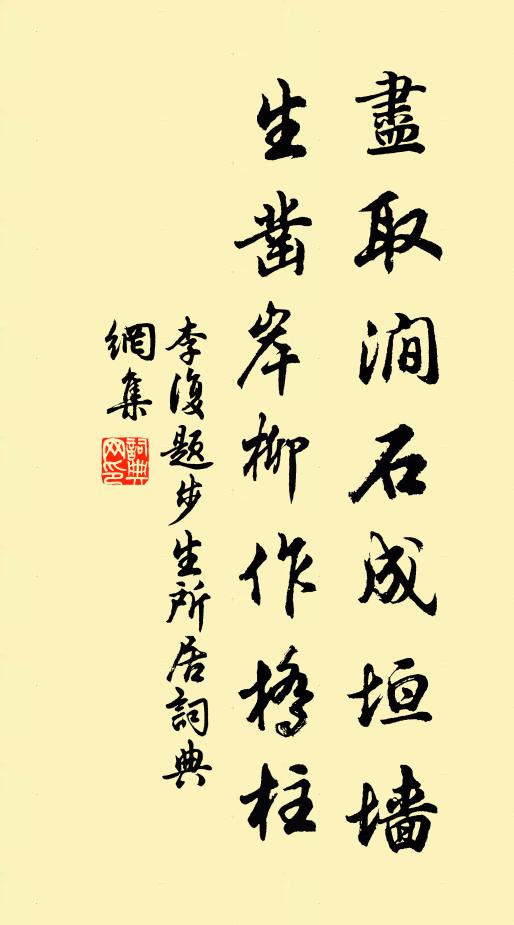 盡取澗石成垣墙
生凿岸柳作橋柱
李復题步生所居詞典
網集
詞典網印